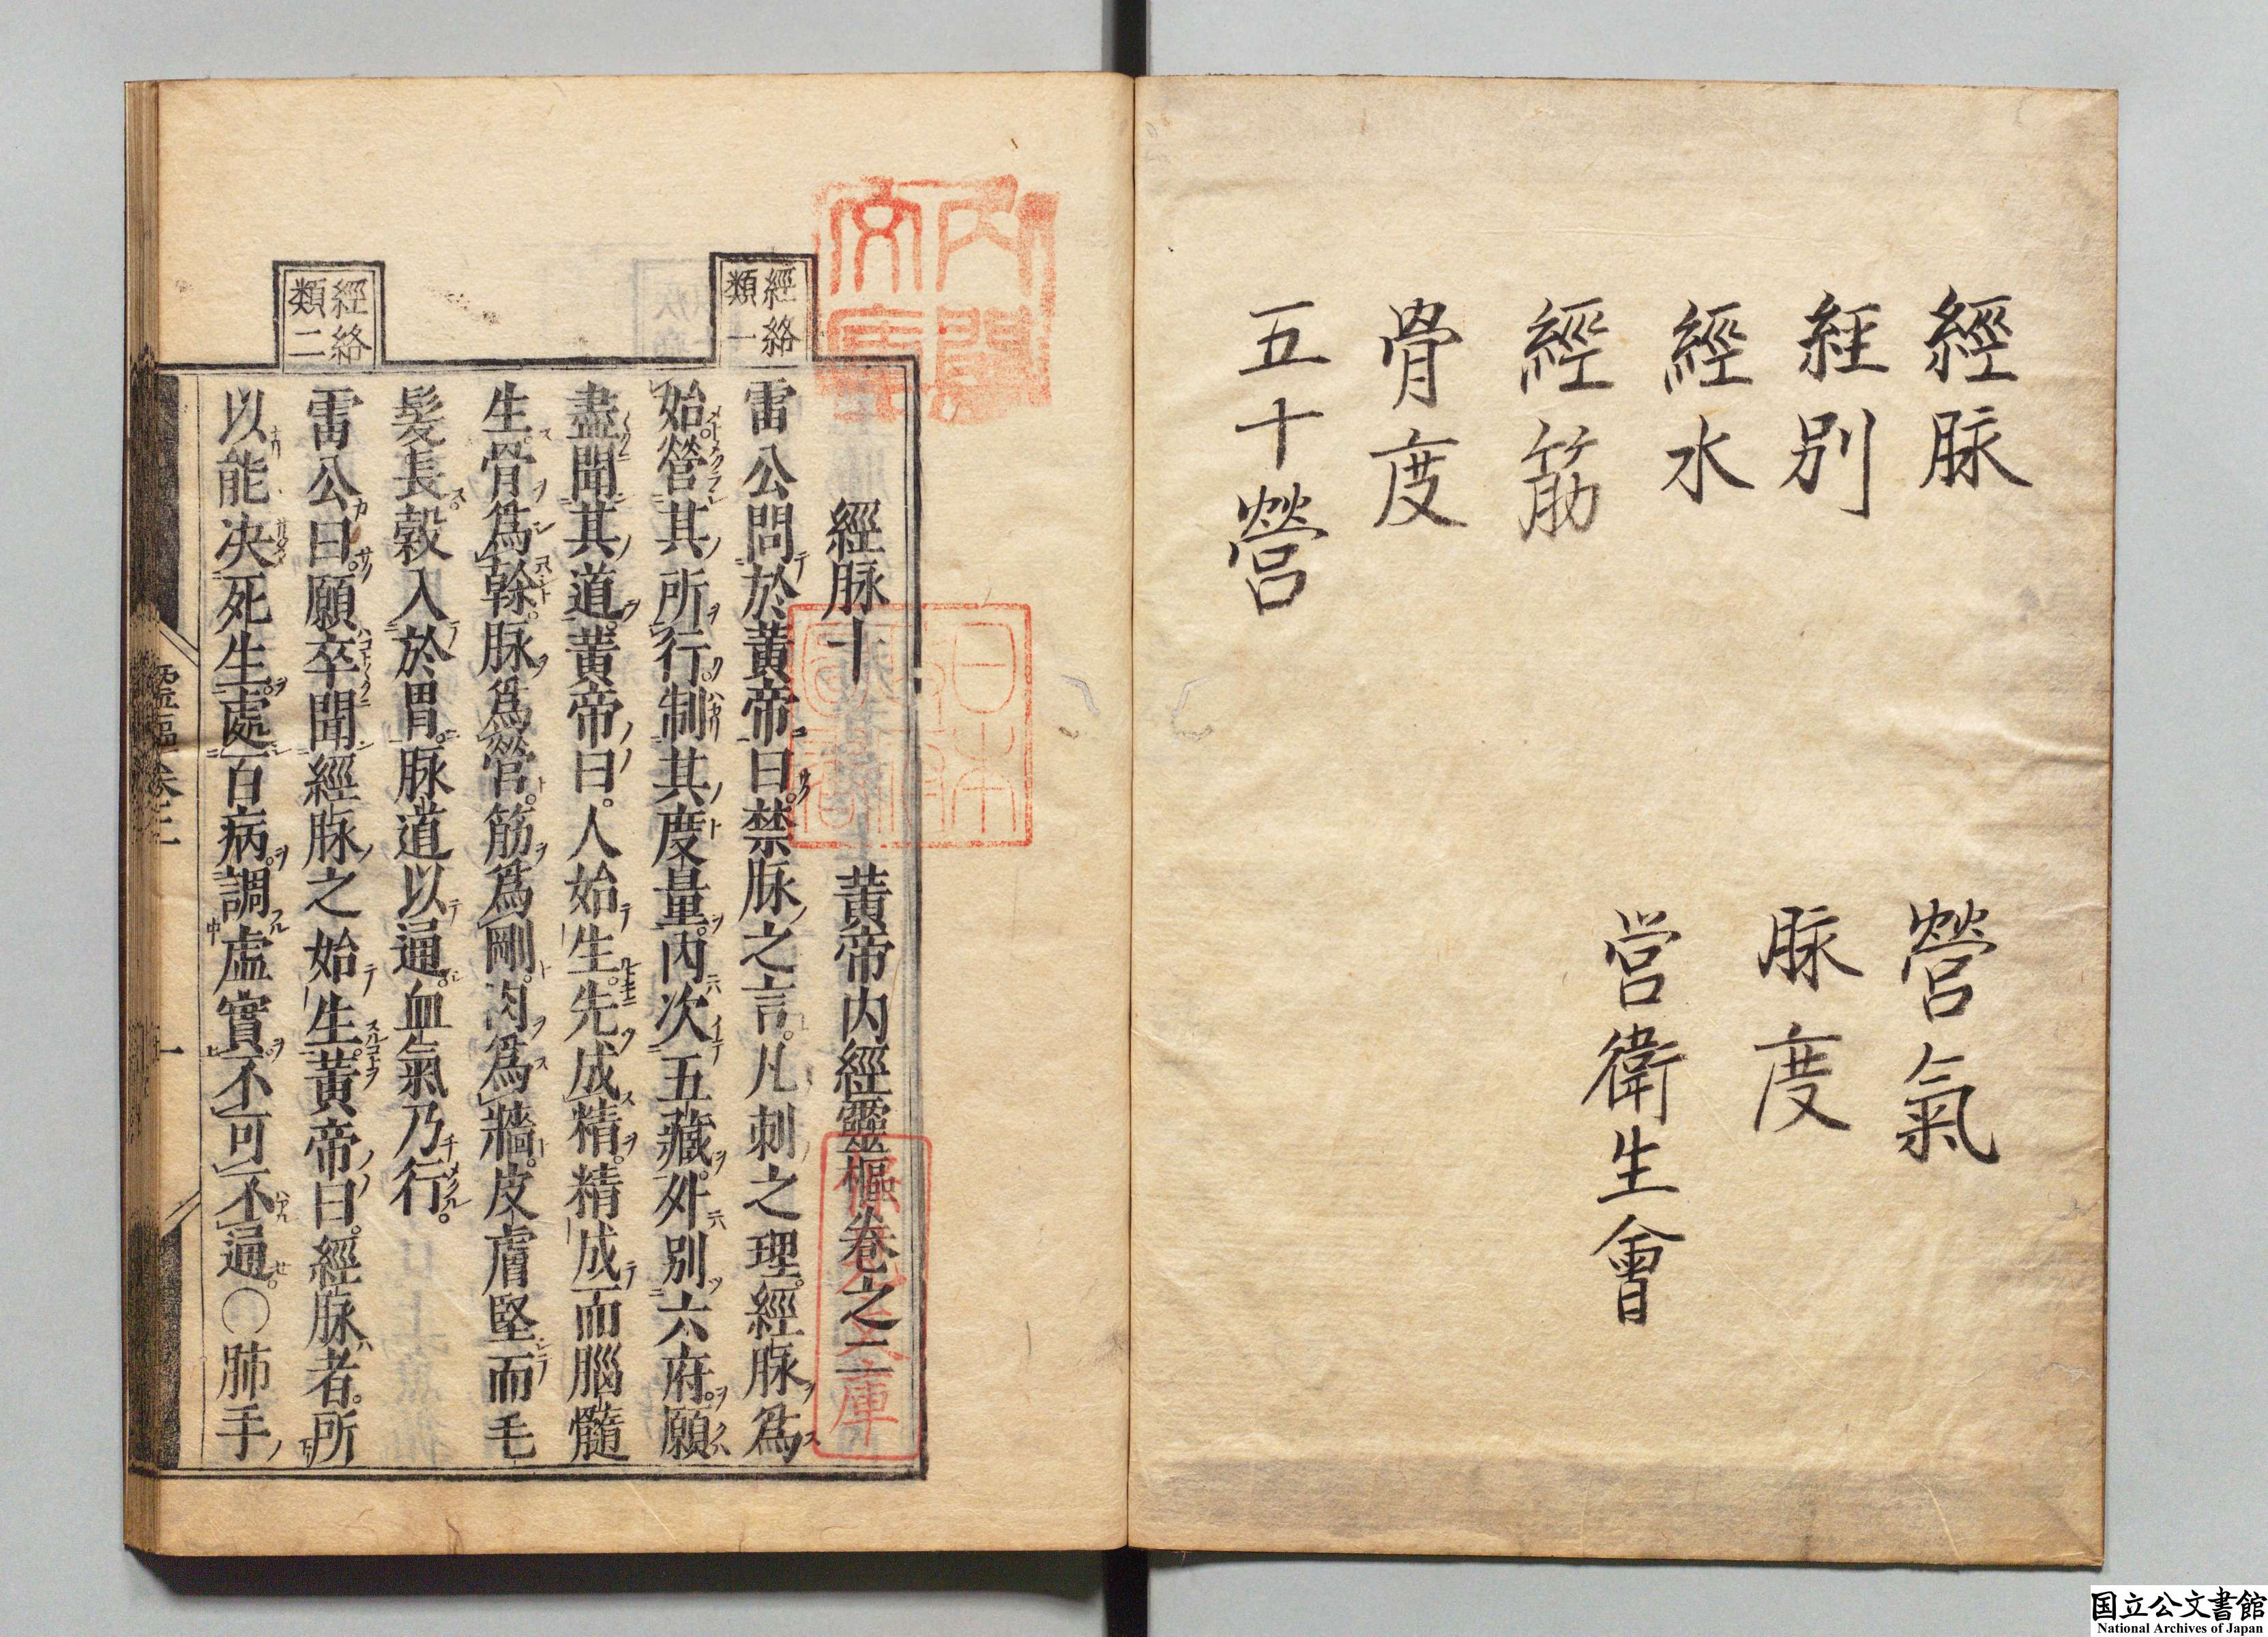 經脉
経別
經水
經筋
骨度
五十營
營氣
脉度
営衛生會
內閣文庫
日本政府圖書
經脉十　黃帝內經靈樞卷之三
經絡類一
雷公問於黃帝曰禁脉之言凡刺之理經脉爲
始營其所行制其度量內次五藏外別六府願
盡聞其道黃帝曰人始生先成精精成而腦髓
生骨爲幹脉爲營筋爲剛肉爲牆皮膚堅而毛
髮長穀入於胃脉道以通血氣乃行
經絡類二
雷公曰願卒聞經脉之始生黃帝曰經脉者所
以能决死生處百病調虛實不可不通〇肺手
靈樞卷三
一
国立公文書館
National Archives of Japan